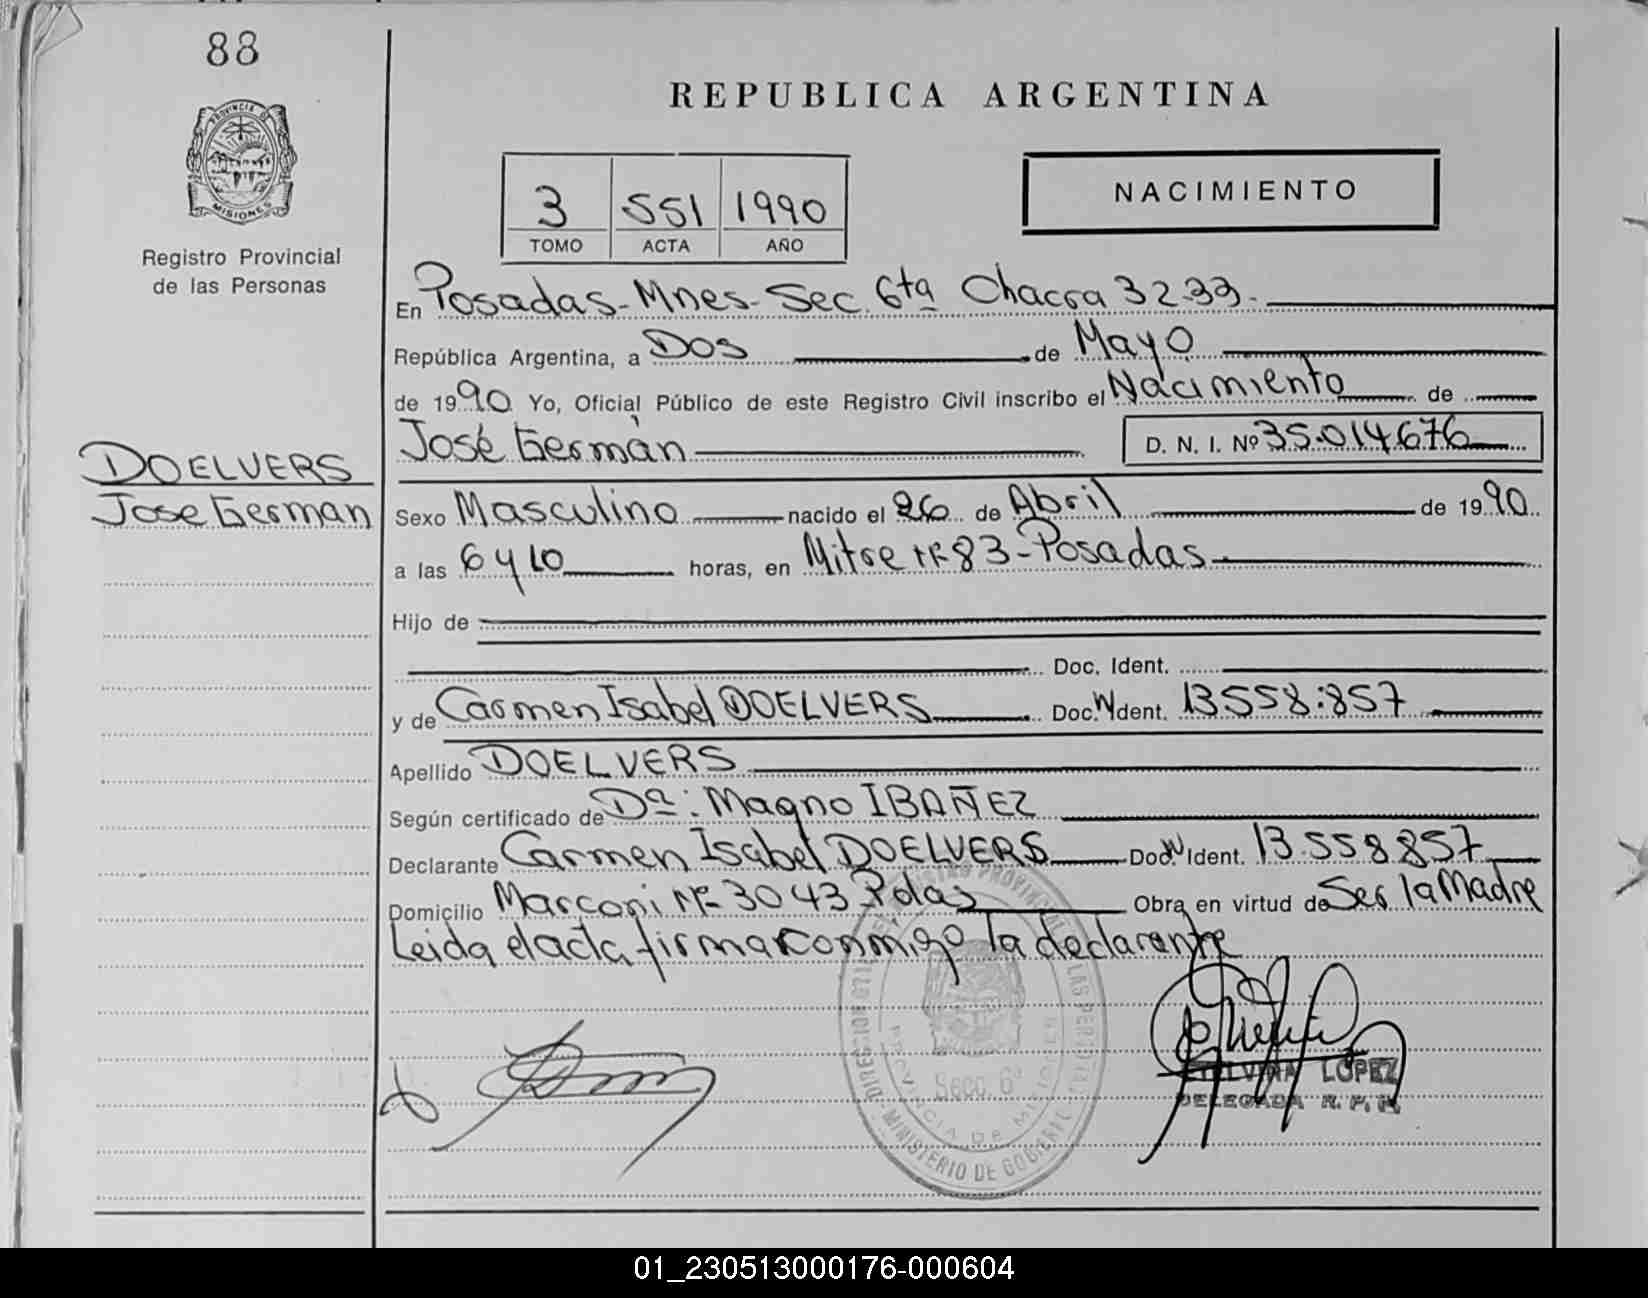 88
REPUBLICA ARGENTINA
PROVINCIA DE
MISIONES
Registro Provincial
de las Personas
3 551 1990
TOMO ACTA AÑO
NACIMIENTO
En Posadas-Mnes-Sec. 6ta Chacra 32.33.
República Argentina, a Dos de Mayo
de 1990 Yo, Oficial Público de este Registro Civil inscribo el Nacimiento de
José Germán D. N. I. Nº 35.014.676
DOELVERS
Jose German
Sexo Masculino nacido el 26 de Abril de 1990
a las 6 y 10 horas, en Mitre Nº 83-Posadas
Hijo de
Doc. Ident.
y de Carmen Isabel DOELVERS Doc. N Ident. 13.558.857
Apellido DOELVERS
Según certificado de Dª: Magno IBAÑEZ
Declarante Carmen Isabel DOELVERS Doc. N Ident. 13.558.857
Domicilio Marconi Nº 3043 Pdas Obra en virtud de Ser la Madre
Leida el acta firma conmigo la declarante
Secc. 6ª
PROVINCIA DE MISIONES
MINISTERIO DE GOBIERNO
ETELVINA LOPEZ
DELEGADA R. P. P.
01_230513000176-000604